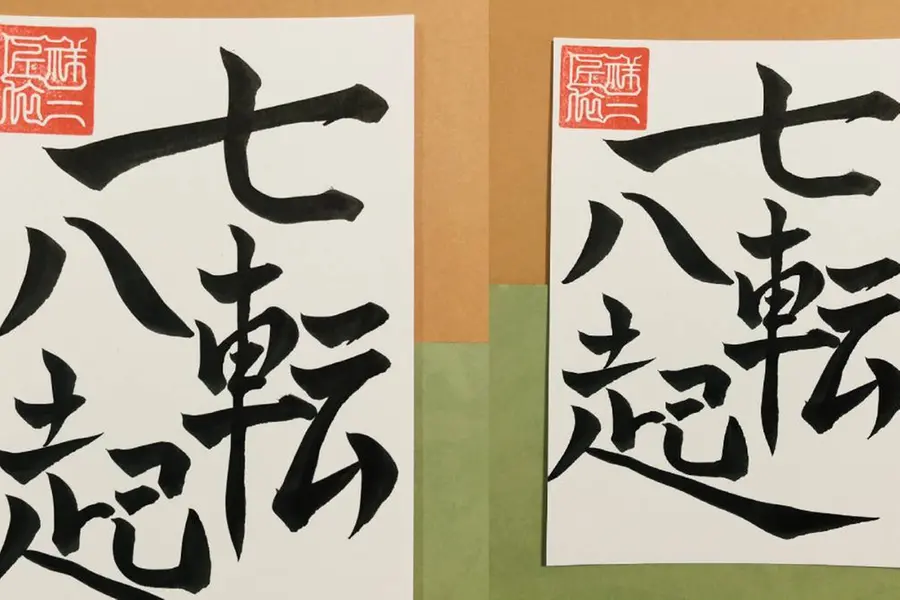 七転
八起
七転
八起